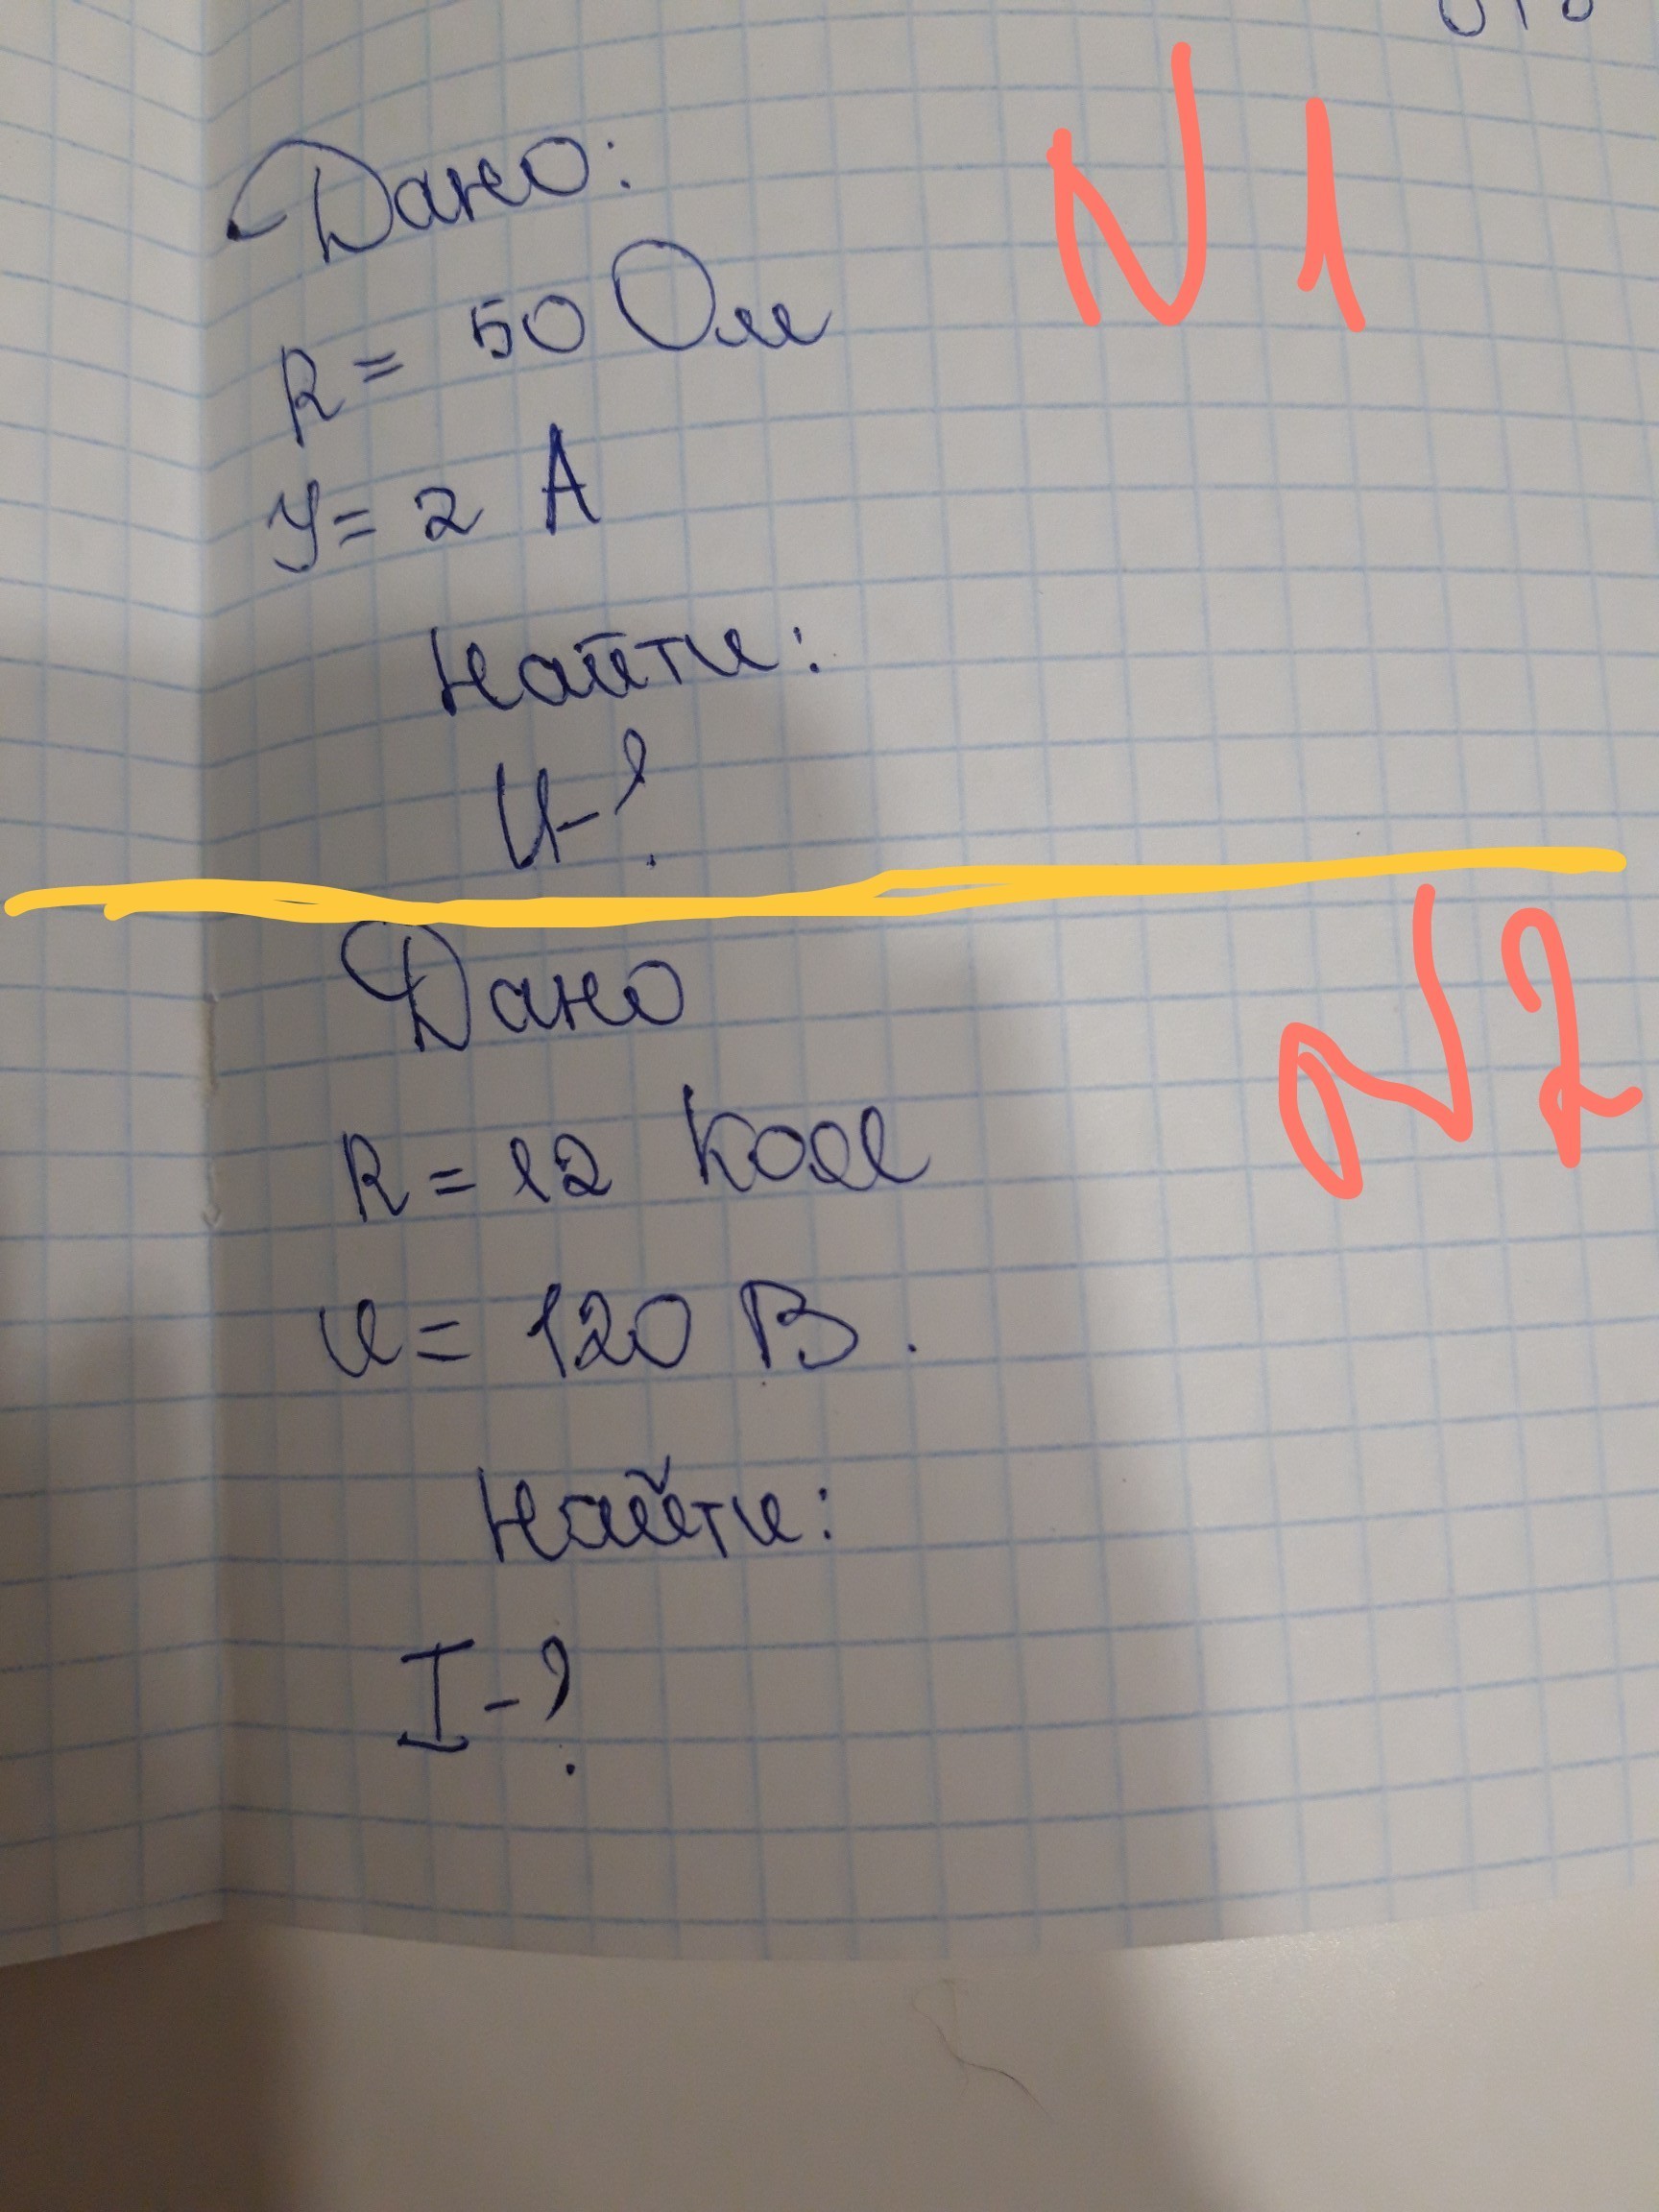 N1
Дано:
R = 50 Ом
У = 2 А
Найти:
U-?
N2
Дано
R = 12 Ком
U = 120 В.
Найти:
I-?